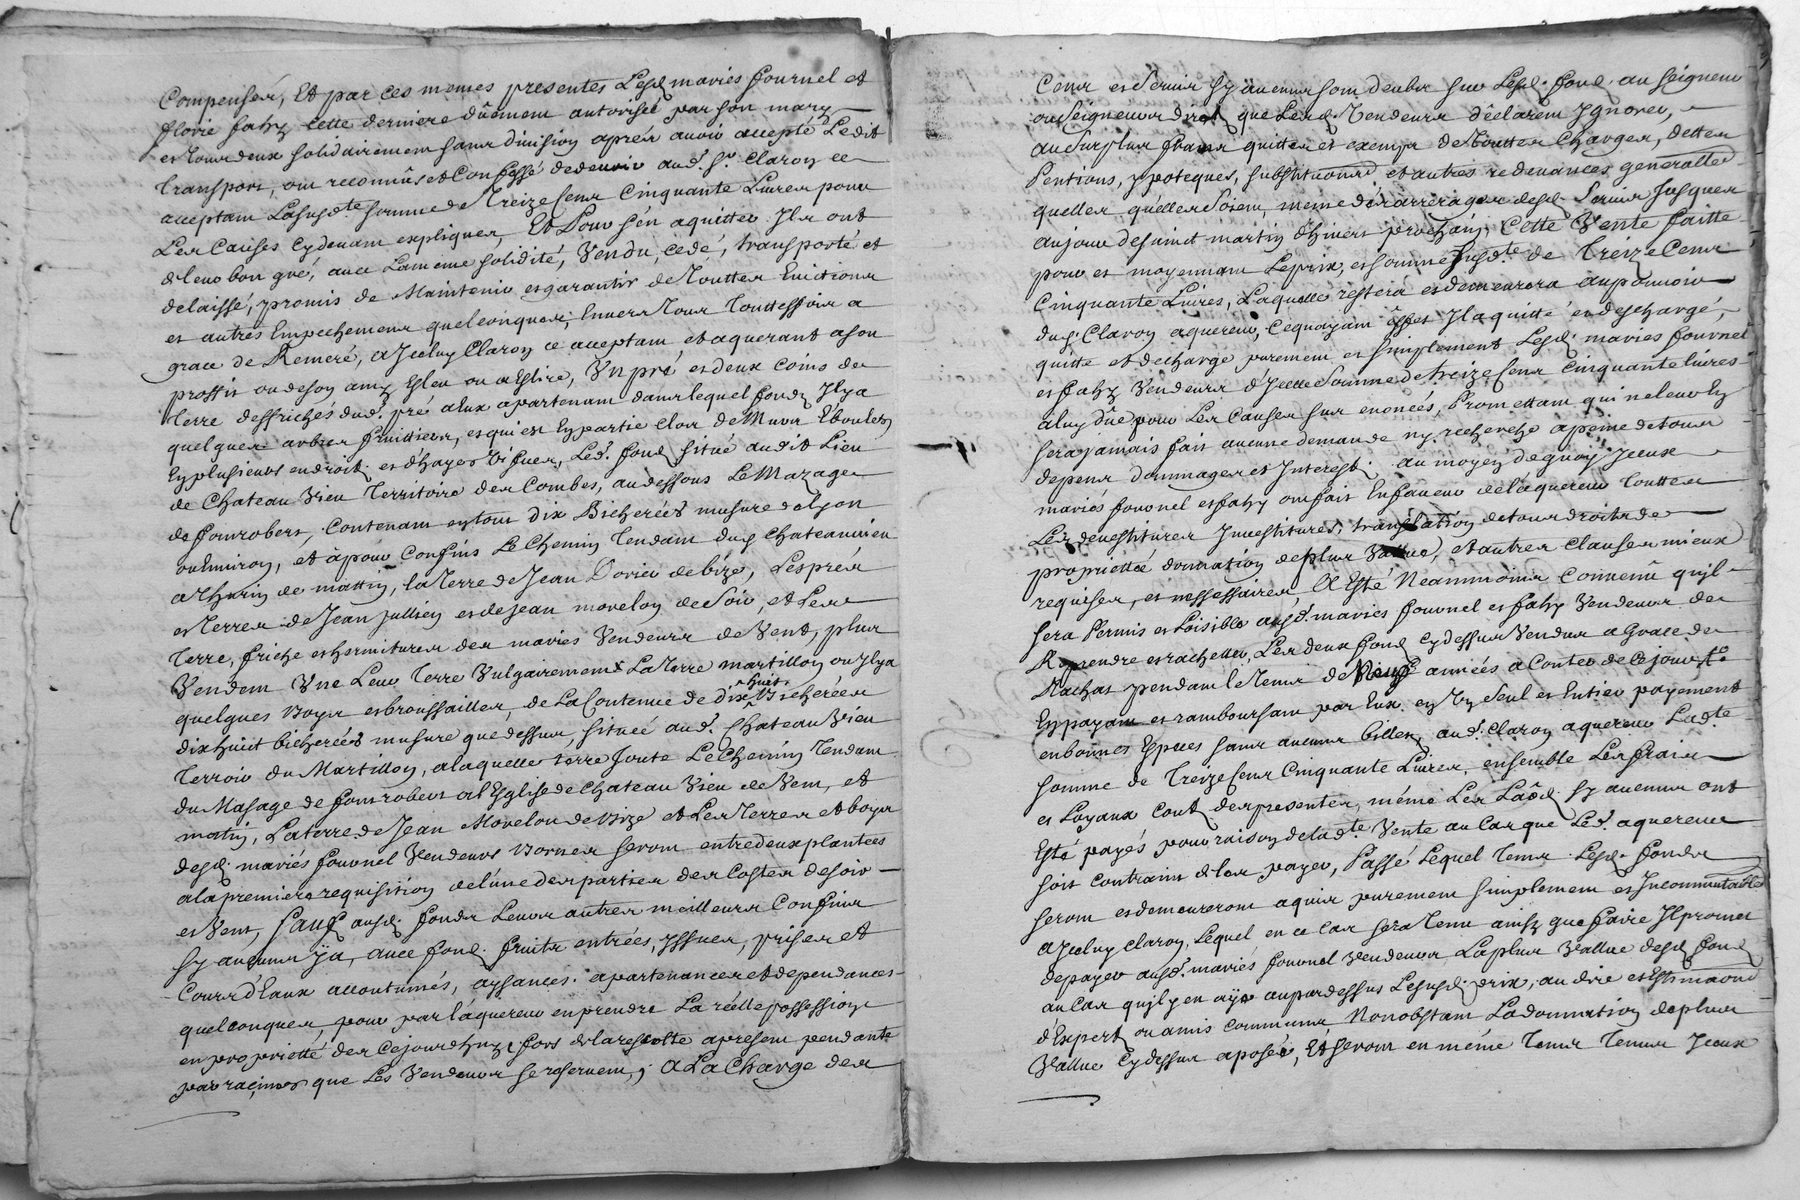 Compensér, Et par ces memes presentes Lesd. mariés fournel et
florie fahy cette derniere dûement autorisée par son mary
et tous deux solidairement sans division aprés avoir accepté Ledit
transport, ont reconnûs et Confessé de devoir aud. Sr. Claron ce
acceptant La susd.te somme de Treize Cens Cinquante Livres pour
Les Causes cy devant expliquées, Et Pour s'en aquitter Ils ont
de leur bon gré, avec La meme solidité, Vendu, cedé, transporté et
delaissé, promis de Maintenir et garantir de Touttes Evictions
et autres Empechemens quelconques, Envers tous Touttessois a
grace de Remeré, a Jceluy Claron ce acceptant et aquerant a son
proffit ou de son amy Esleu ou a Eslire, Un pré et deux coins de
Terre deffrichés dud. pré a Eux apartenant dans lequel fond Il y a
quelques arbres fruitiers, et qui est En partie clos de Murs Eboulés
En plusieurs endroit et d'hayes Vifves, Led. fond situé audit Lieu
de Chateau Vieu Territoire des Combes, au dessous Le Mazage
de fontrobert, Contenant en tout dix Bicherées mesure de Lyon
ou Environ, et a pour Confins Le Chemin Tendant dud. Chateauvieu
a Thurin de mattin, la Terre de Jean Dorier de bize, Les prés
et Terres de Jean Jullien et de Jean morelon de Soir, et Les
Terre, friche et hermitures des mariés Vendeurs de Vent, plus
Vendent Vne Leur Terre Vulgairement La Terre martillon ou Il y a
quelques Boys et broussailles, de La Contenue de dix huit Bicherées
dix huit bicherées mesure que dessus, située aud. Chateau Vieu
Terroir du Martillon, a laquelle terre Joute Le Chemin Tendant
du Masage de fontrobert a l'Eglise de Chateau Vieu de Vent, et
matin, La terre de Jean Morelon de Bize et Les Terres et boys
desd. mariés fournel Vendeurs Bornes seront entre deux plantées
a la premiere requisition de l'une des parties des Costes de soir
et Vent, Sauf ausd. fonds Leurs autres meilleurs Confins
sy aucuns y a, avec fond fruits entrées, yssues, prises et
Cours d'Eaux accoutumés, aysances apartenances et dependances
quelconques, pour par l'aquereur en prendre La réelle possession
en proprietté des Cejourd'huy fors de la resolte apresent pendante
par racines que Les Vendeurs se reservent, a La Charge des
Cens et Servis sy aucuns sont deubs sur Lesd. fond au seigneur
ou seigneurs direct que Lesd. Vendeurs déclarent Jgnorer,
au surplus francs quittes et exempt de Touttes Charges, dettes
Pentions, ypoteques, substitutions et autres redevances generalles
quelles qu'elles soient, meme des arrerages desd. Servis Jusques
au jour de saint martin d'hivers prochain, Cette Vente faitte
pour et moyennant Le prix et somme susd.te de Treize Cens
Cinquante Livres, Laquelle restera et demeurera au pouvoir
dud. Claron aquereur, Ce quoyant effet Il a quitté et deschargé,
quitte et decharge purement et simplement Lesd. mariés fournel
et fahy Vendeurs d'Jcelle Somme de treize Cens cinquante livres
a luy dûe pour Les Causes sus enoncées, Promettant qu'il ne leur En
sera jamais fait aucune demande ny recherche a peine de tous
depens dommages et Interest, au moyen de quoy Jceux
mariés fournel et fahy ont fait En faveur de l'aquereur Touttes
Les devestitures Jnvestitures, translation de tous droits de
proprietté donnation de plus Vallue, et autres Clauses mieux
requises, et nessessaires, A Esté Neanmoins Convenû qu'il
sera Permis et Loisible ausd. mariés fournel et fahy Vendeurs de
Reprendre et rachetter, Les deux fond cy dessus Vendus a Grace de
Rachat pendant Le Tems de Neuf années a Conter de Ce jour
En payant et remboursant par Eux en Vn seul et Entier payement
en bonnes Especes sans aucuns billets aud. Claron aquereur Lad.te
somme de Treize Cens Cinquante Livres, ensemble Les fraix
et Loyaux cout des presentes, méme Les Laôd sy aucuns ont
Esté payés pour raison de lad.te Vente au Cas que Led. aquereur
soit contraint de les payer, Passé Lequel tems Lesd. fonds
seront et demeureront aquis purement simplement et Jncommutable
a Jceluy Claron, Lequel en ce cas sera tenu ainsy que faire Il promet
de payer ausd. mariés fournel vendeurs La plus Vallue desd. fond
au Cas qu'il y en aye au par dessus Le susd. prix, au dire et Estimaon
d'Expert ou amis communs Nonobstant La donnation de plus
Vallue Cy dessus aposée, Et seront en méme Tems Tenus Jceux